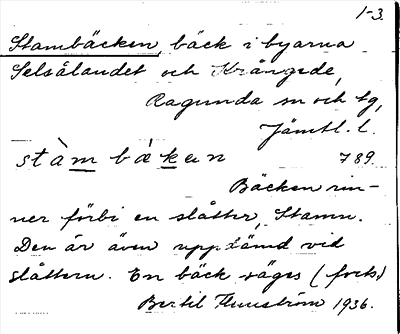 1-3.
Stambäcken, bäck i byarna
Selsålandet och Krångede,
Ragunda sn och tg,
Jämtl. l.
stàm bä̀ken 789.
Bäcken rin-
ner förbi en slåtter, Stamn.
Den är även uppdämd vid
slåttern. En bäck säges (forts.)
Bertil Flemström 1936.